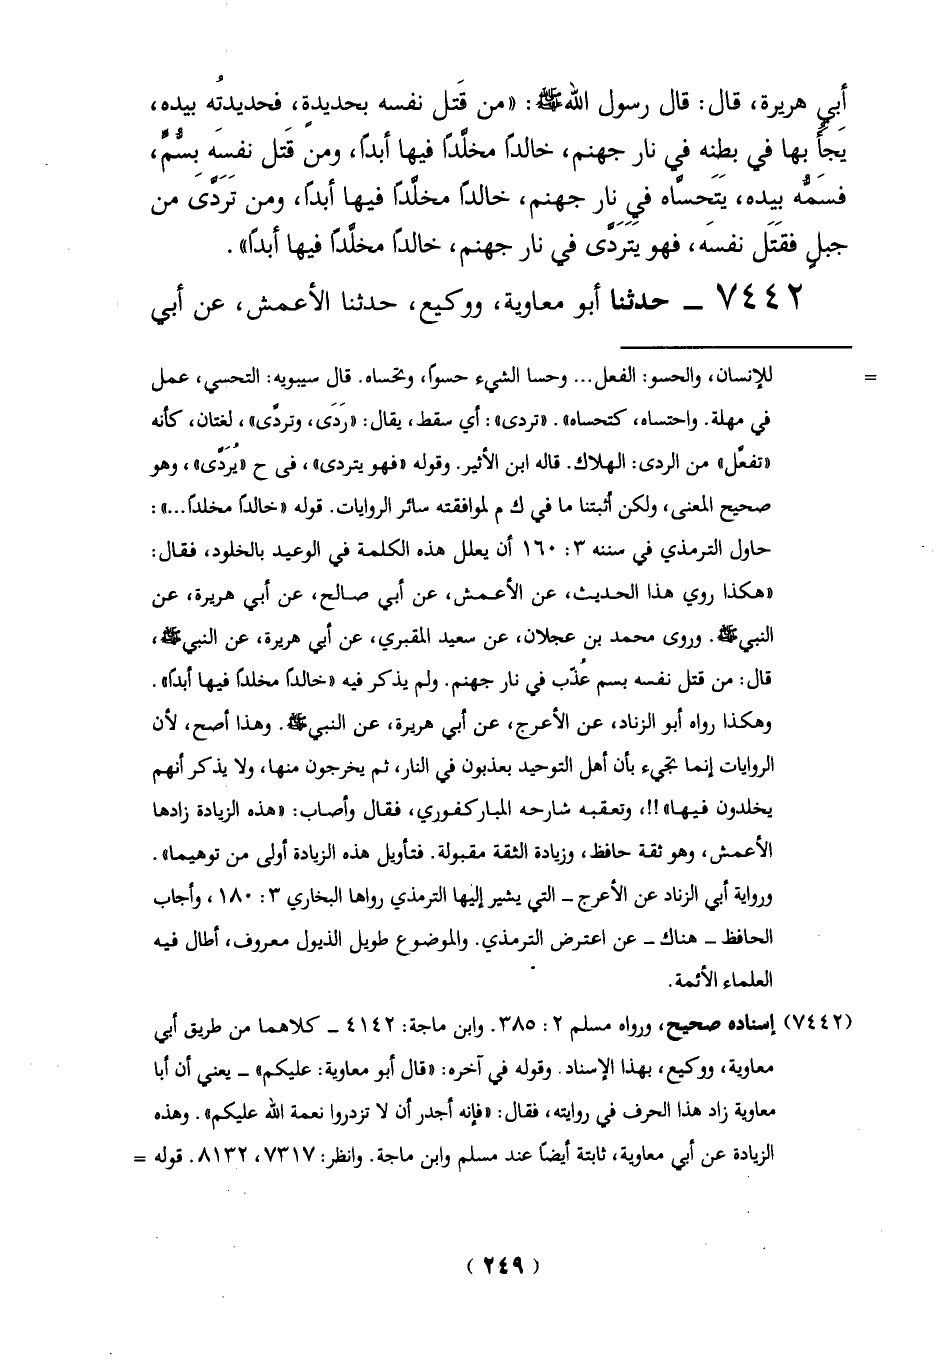 أبي هريرة، قال: قال رسول الله ﷺ: «من قَتل نفسه بحديدة، فحديدتُه بيده،
يجأُ بها في بطنه في نار جهنم، خالداً مخلَّداً فيها أبداً، ومن قَتل نفسَه بسُمٍّ،
فسمُّه بيده، يَتحسَّاه في نار جهنم، خالداً مخلَّداً فيها أبداً، ومن تَرَدَّى من
جبلٍ فقتَل نفسَه، فهو يَتَردَّى في نار جهنم، خالداً مخلَّداً فيها أبداً».
٧٤٤٢ ــ حدثنا أبو معاوية، ووكيع، حدثنا الأعمش، عن أبي
= للإنسان، والحسو: الفعل... وحسا الشيء حسواً، وتحساه. قال سيبويه: التحسي، عمل
في مهلة. واحتساه، كتحساه». «تردى»: أي سقط، يقال: «رَدَى، وتردَّى»، لغتان، كأنه
«تفعَّل» من الردى: الهلاك. قاله ابن الأثير. وقوله «فهو يتردى»، فى ح «يُرَدَّى»، وهو
صحيح المعنى، ولكن أثبتنا ما في ك م لموافقته سائر الروايات. قوله «خالداً مخلداً...»:
حاول الترمذي في سننه ٣: ١٦٠ أن يعلل هذه الكلمة في الوعيد بالخلود، فقال:
«هكذا روي هذا الحديث، عن الأعمش، عن أبي صالح، عن أبي هريرة، عن
النبي ﷺ. وروى محمد بن عجلان، عن سعيد المقبري، عن أبي هريرة، عن النبي ﷺ،
قال: من قتل نفسه بسم عُذّب في نار جهنم. ولم يذكر فيه «خالداً مخلداً فيها أبداً».
وهكذا رواه أبو الزناد، عن الأعرج، عن أبي هريرة، عن النبي ﷺ. وهذا أصح، لأن
الروايات إنما تجيء بأن أهل التوحيد يعذبون في النار، ثم يخرجون منها، ولا يذكر أنهم
يخلدون فيها»!!، وتعقبه شارحه المباركفوري، فقال وأصاب: «هذه الزيادة زادها
الأعمش، وهو ثقة حافظ، وزيادة الثقة مقبولة. فتأويل هذه الزيادة أولى من توهيما».
ورواية أبي الزناد عن الأعرج ــ التي يشير إليها الترمذي رواها البخاري ٣: ١٨٠، وأجاب
الحافظ ــ هناك ــ عن اعترض الترمذي. والموضوع طويل الذيول معروف، أطال فيه
العلماء الأئمة.
(٧٤٤٢) إسناده صحيح، ورواه مسلم ٢: ٣٨٥. وابن ماجة: ٤١٤٢ ــ كلاهما من طريق أبي
معاوية، ووكيع، بهذا الإسناد. وقوله في آخره: «قال أبو معاوية: عليكم» ــ يعني أن أبا
معاوية زاد هذا الحرف في روايته، فقال: «فإنه أجدر أن لا تزدروا نعمة الله عليكم». وهذه
الزيادة عن أبي معاوية، ثابتة أيضاً عند مسلم وابن ماجة. وانظر: ٧٣١٧، ٨١٣٢. قوله =
(٢٤٩)